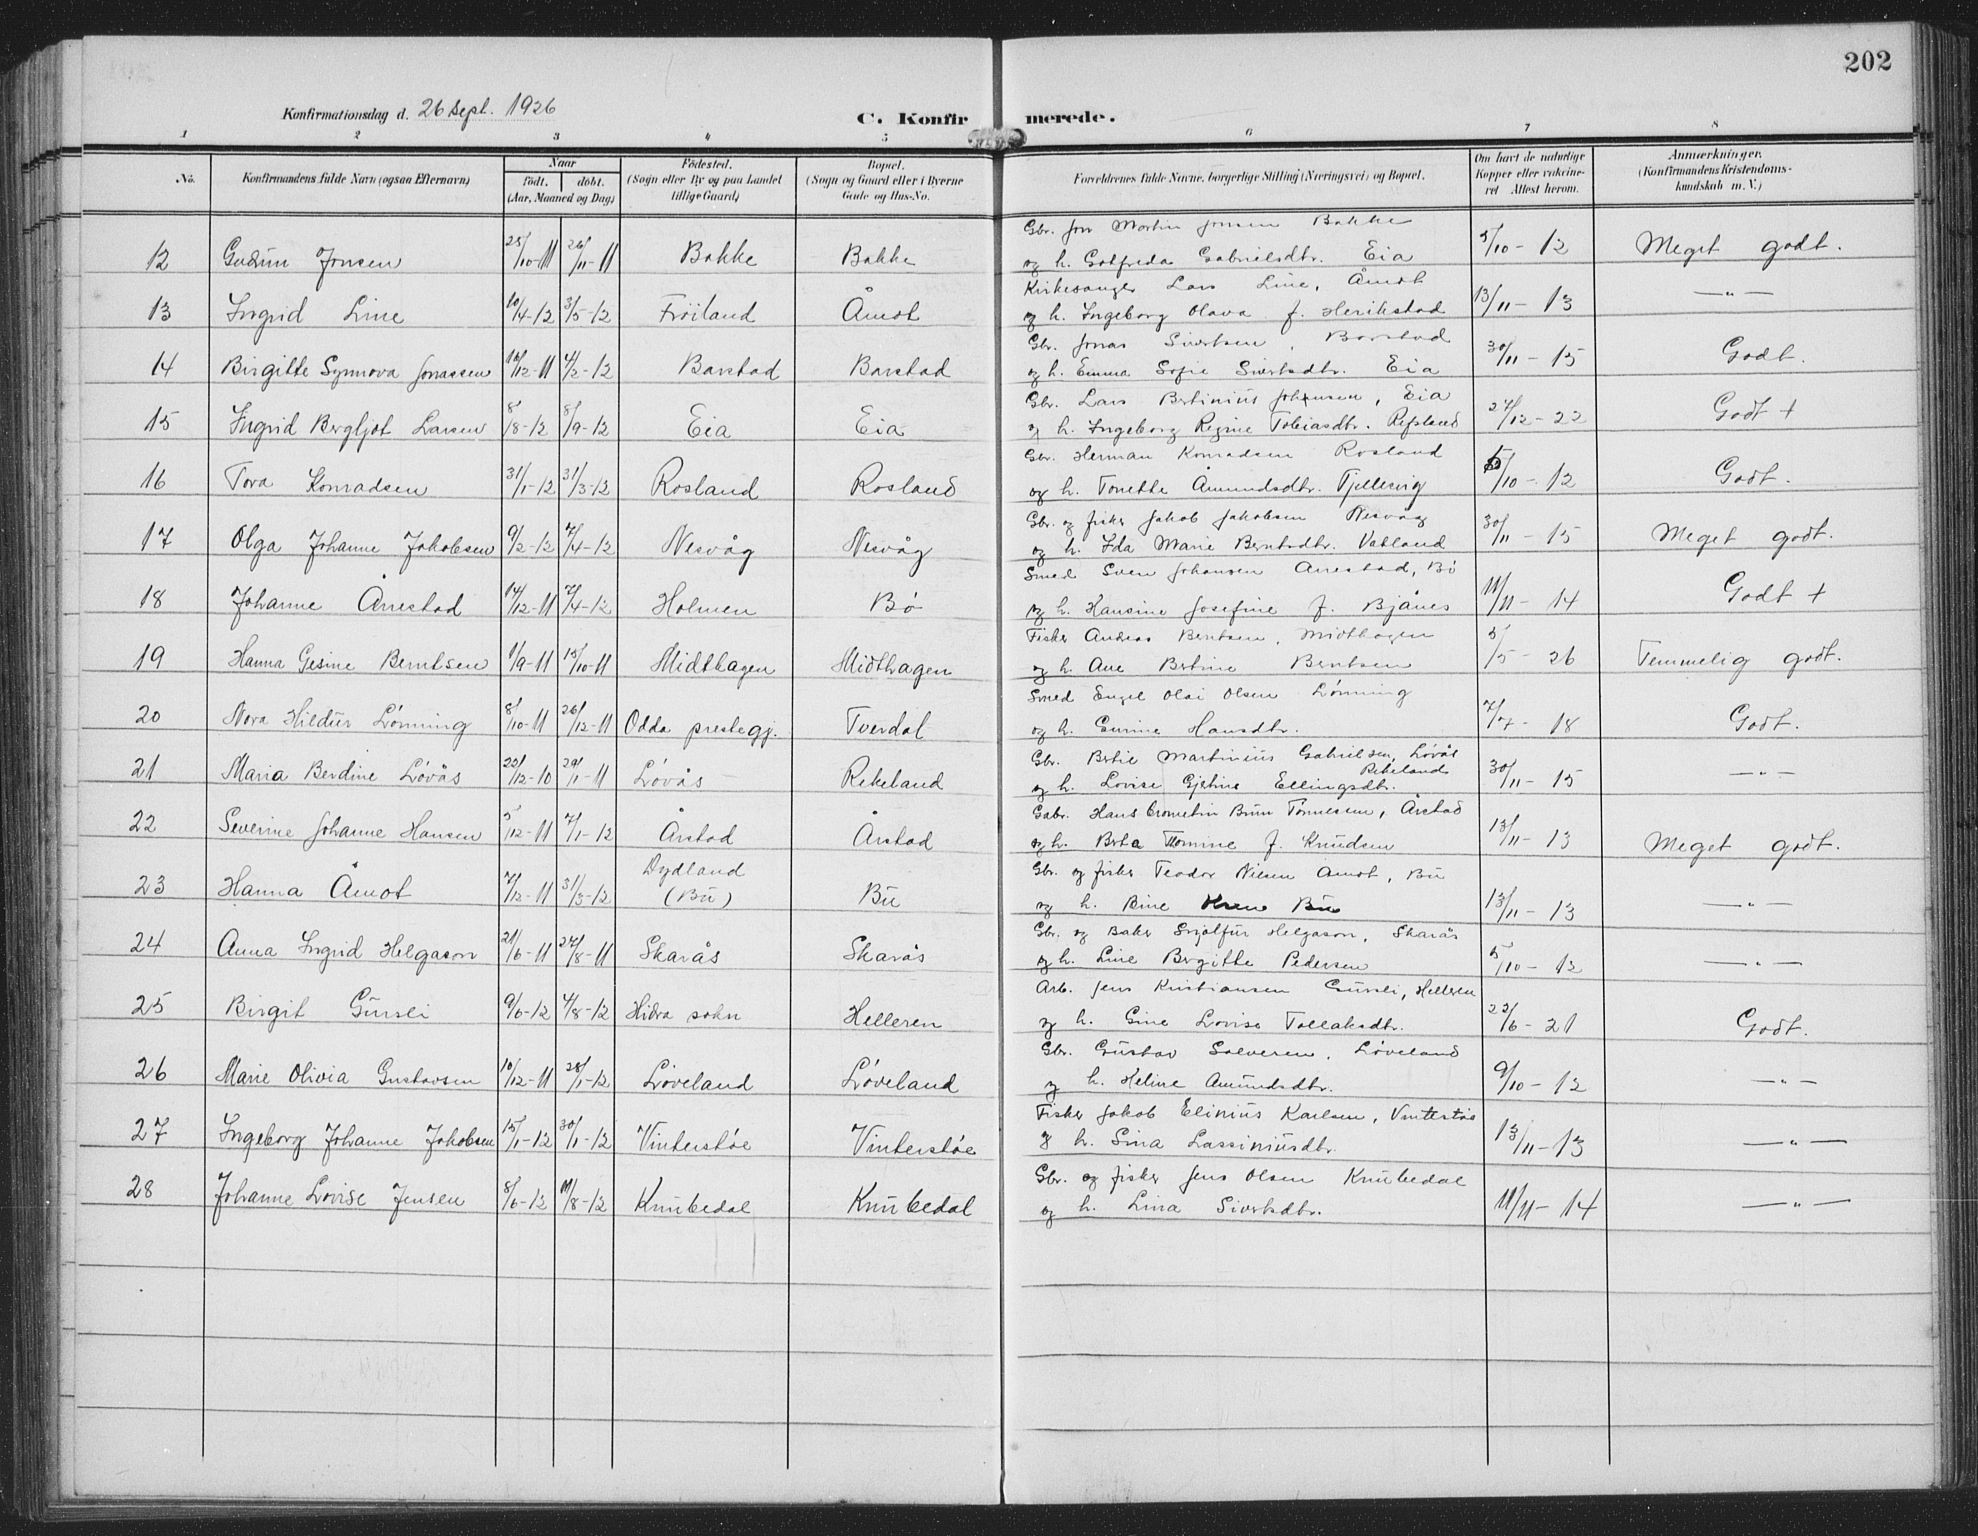 202
Konfirmationsdag d. 26 Sept. 1926
C. Konfirmerede.
1 2 3 4 5 6 7 8
No.
Konfirmandens fulde Navn (ogsaa Efternavn)
Naar
födt. döbt.
(Aar, Maaned og Dag)
Födested.
(Sogn eller By og paa Landet
tillige Gaard)
Bopæl.
(Sogn og Gaard eller i Byerne
Gade og Hus-No.
Forældrenes fulde Navne, borgerlige Stilling (Næringsvei) og Bopæl.
Om havt de naturlige
Kopper eller vaksine-
ret Attest herom.
Anmærkninger.
(Konfirmandens Kristendoms-
kundskab m. V.)
Gbr. Jon Martin Jonsen Bakke
12 Gudrun Jonsen 25/10-11 26/11-11 Bakke Bakke og h. Gotfreda Gabrielsdtr. Eia 5/10-12 Meget godt.
Kirkesanger Lars Line, Åmot
13 Ingrid Line 10/4-12 3/5-12 Fröiland Åmot og h. Ingeborg Olava f. Herikstad 13/11-13 —"—
Gbr. Jonas Sivertsen, Barstad
14 Birgitte Synnova Jonassen 16/12-11 4/2-12 Barstad Barstad og h. Emma Sofie Sivertsdtr. Eia 30/11-15 Godt.
Gbr. Lars Bertinius Johansen, Eia
15 Ingrid Bergljot Larsen 8/8-12 8/9-12 Eia Eia og h. Ingeborg Regine Tobiasdtr. Refsland 27/12-22 Godt +
Gbr. Herman Konradsen Rosland
16 Tora Konradsen 31/1-12 31/3-12 Rosland Rosland og h. Tonette Åmundsdtr. Tjellesvig 5/10-12 Godt.
Gbr. og fisker Jakob Jakobsen Nesvåg
17 Olga Johanne Jakobsen 9/2-12 7/4-12 Nesvåg Nesvåg og h. Ida Marie Berntsdtr. Vatland 30/11-15 Meget godt.
Smed Sven Johansen Ånestad, Bö
18 Johanne Ånestad 14/12-11 7/4-12 Holmen Bö og h. Hansine Josefine f. Bjånes 11/11-14 Godt +
Fisker Andreas Berntsen, Midthagen
19 Hanna Gesine Berntsen 1/9-11 15/10-11 Midthagen Midthagen og h. Ane Bertine Berntsen 5/5-26 Temmelig godt.
Smed Engel Olai Olsen Lönning
20 Nora Hildur Lönning 8/10-11 26/12-11 Odda prestegj. Tverdal og h. Gurine Hansdtr. 7/7-18 Godt.
Gbr. Bertie Martinius Gabrielsen, Lövås
Rekeland
21 Maria Berdine Lövås 22/12-10 29/1-11 Lövås Rekeland og h. Lovise Gjertine Ellingsdtr. 30/11-15 —"—
Gabr. Hans Crometin Bruun Tönnesen, Årstad
22 Severine Johanne Hansen 5/12-11 7/1-12 Årstad Årstad og h. Berta Tomine f. Knudsen 13/11-13 Meget godt.
Gbr. og fisker Teodor Nilsen Åmot, Bu
23 Hanna Åmot 7/12-11 31/3-12 Dydland
(Bu) Bu og h. Bine Bu 13/11-13 —"—
Gbr. og Baker Snjolfur Helgason, Skarås
24 Anna Ingrid Helgason 21/6-11 27/8-11 Skarås Skarås og h. Line Bergitte Pedersen 5/10-12 —"—
Arb. Jens Kristiansen Gursli, Helleren
25 Birgit Gursli 9/6-12 4/8-12 Hidra sokn Helleren og h. Gine Lovise Tollaksdtr. 22/6-21 Godt.
Gbr. Gustav Salvesen, Löveland
26 Marie Olivia Gustavsen 10/12-11 28/1-12 Löveland Löveland og h. Heline Amundsdtr. 9/10-12 —"—
Fisker Jakob Elinius Karlsen, Vinterstöe
27 Ingeborg Johanne Jakobsen 15/1-12 30/1-12 Vinterstöe Vinterstöe og h. Sina Lassiniusdtr. 13/11-13 —"—
Gbr. og fisker Jens Olsen Knubedal
28 Johanne Lovise Jensen 8/6-12 11/8-12 Knubedal Knubedal og h. Lina Sivertsdtr. 11/11-14 —"—